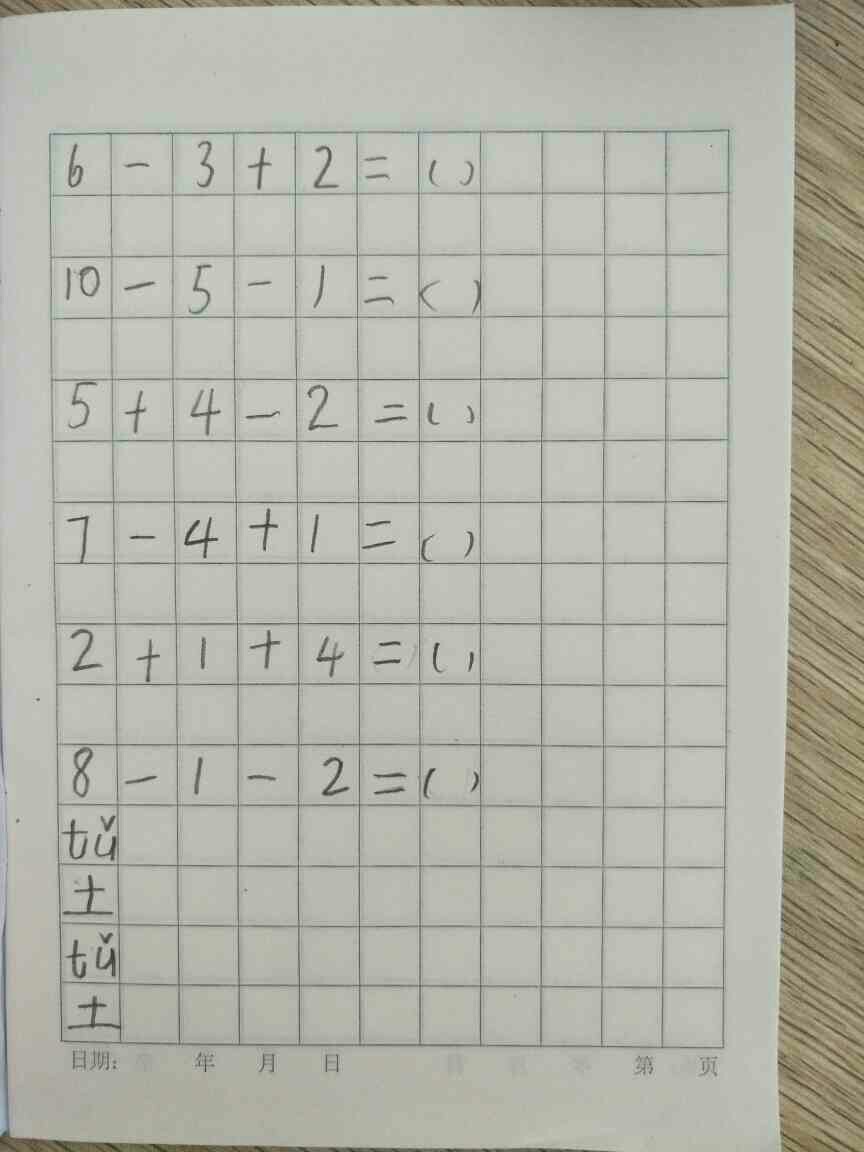 6 - 3 + 2 = ( )
10 - 5 - 1 = ( )
5 + 4 - 2 = ( )
7 - 4 + 1 = ( )
2 + 1 + 4 = ( )
8 - 1 - 2 = ( )
tǔ
土
tǔ
土
日期： 年 月 日 第 页